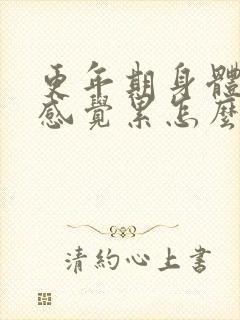 更年期身體
感覺累怎麼
清約心上書